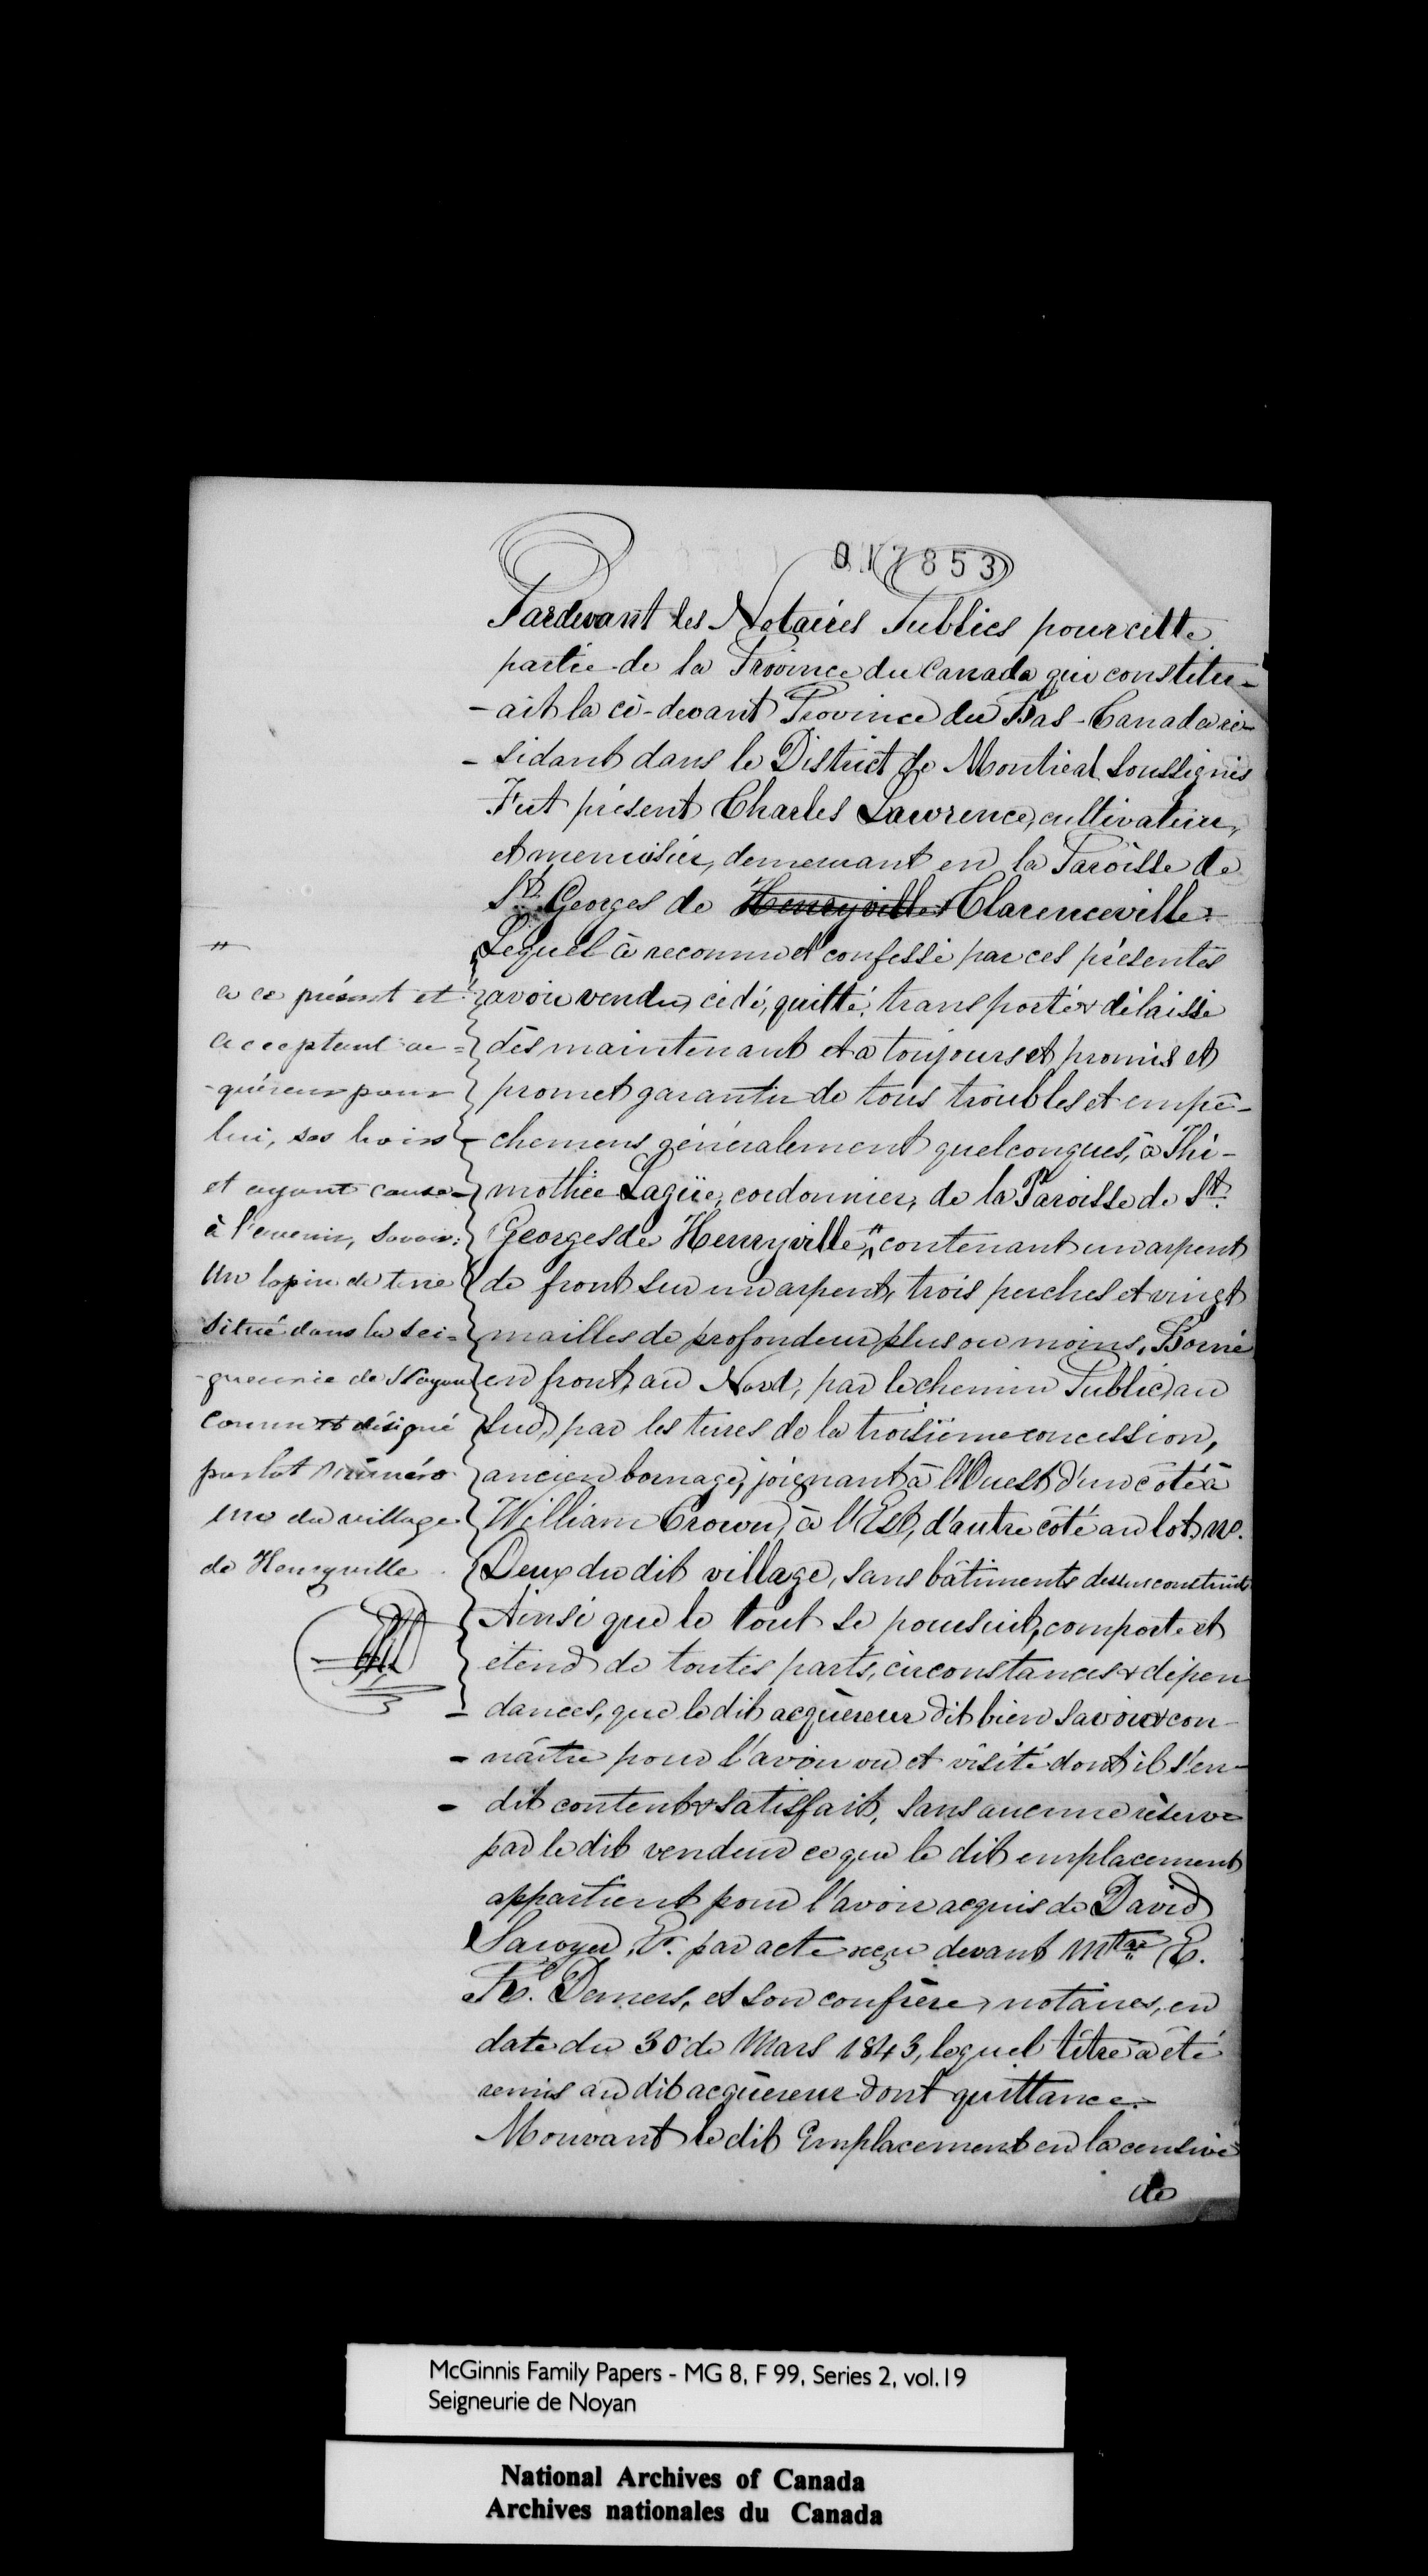 017853
Pardevant les Notaires Publics pour cette
partie de la Province du Canada qui constitu-
-ait la ci-devant Province du Bas-Canada ré-
-sidant dans le District de Montréal Soussignés
Fut présent Charles Lawrence, cultivateur,
et menuisier, demeurant en la Paroisse de
St. Georges de Henryville Clarenceville.
Lequel à reconnu et confessé par ces présentes
avoir vendu, cédé, quitté, transporté & délaissé
dès maintenant et à toujours et promis et
promet garantir de tous troubles et empê-
-chemens généralement quelconques, à Thi-
mothée Lagüe, cordonnier, de la Paroisse de St.
Georges de Henryville, " contenant un arpent
de front sur un arpent, trois perches et vingt
mailles de profondeur plus ou moins, Borné
en front, au Nord, par le chemin Public, au
Sud, par les terres de la troisième concession,
ancien bornage, joignant à l'Ouest d'un côté à
William Crown, à l'Est, d'autre côté au lot no.
Deux du dit village, sans bâtiments dessus construits
Ainsi que le tout se poursuit, comporte et
étend de toutes parts, circonstances & dépen
- dances, que le dit acquéreur dit bien savoir & con-
- naître pour l'avoir vu et visité dont il s'en-
- dit content & satisfait, sans aucune réserve
par le dit vendeur ce que le dit emplacement
appartient pour l'avoir acquis de David
Sawyer, Er. par acte reçu devant Mtre E.
Fs. Demers, et son confrère, notaires, en
date du 30 de Mars 1843, lequel titre à été
remis au dit acquéreur dont quittance.
Mouvant le dit Emplacement en la censive
de
"
a ce présent et
acceptant ac=
-quéreur pour
lui, ses hoirs
et ayant cause
à l'avenir, Savoir:
Un lopin de terre
situé dans la Sei=
-gneurie de Noyan
connu et désigné
par lot numéro
un du village
de Henryville
McGinnis Family Papers - MG 8, F 99, Series 2, vol.19
Seigneurie de Noyan
National Archives of Canada
Archives nationales du Canada